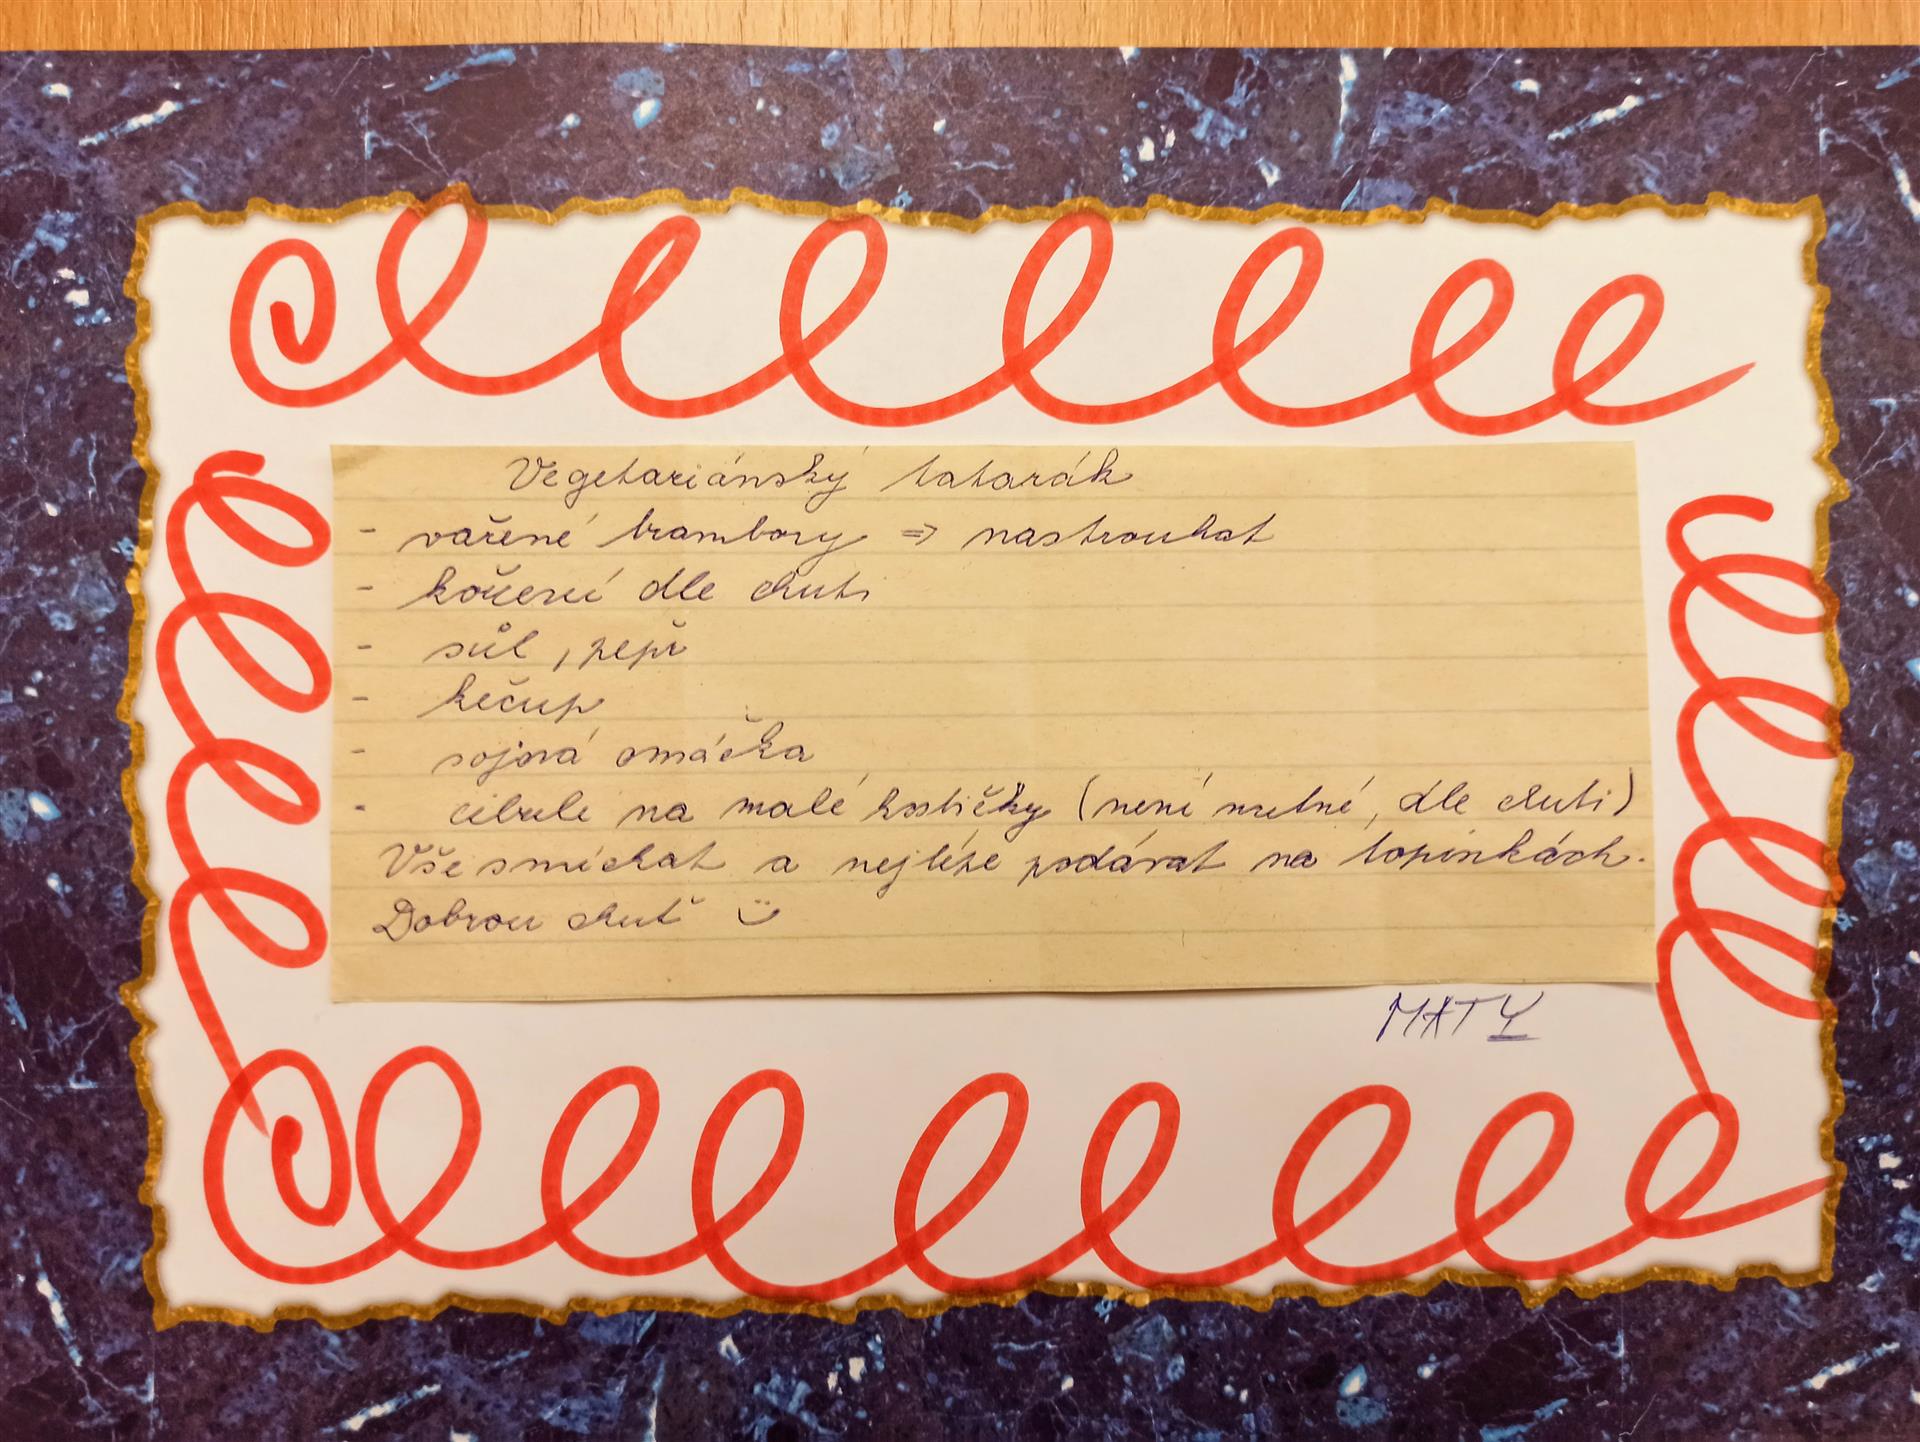 Vegetariánský tatarák
- vařené brambory => nastrouhat
- koření dle chuti
- sůl, pepř
- kečup
- sojová omáčka
- cibule na malé kostičky (není nutné, dle chuti)
Vše smíchat a nejlépe podávat na topinkách.
Dobrou chuť
MATY